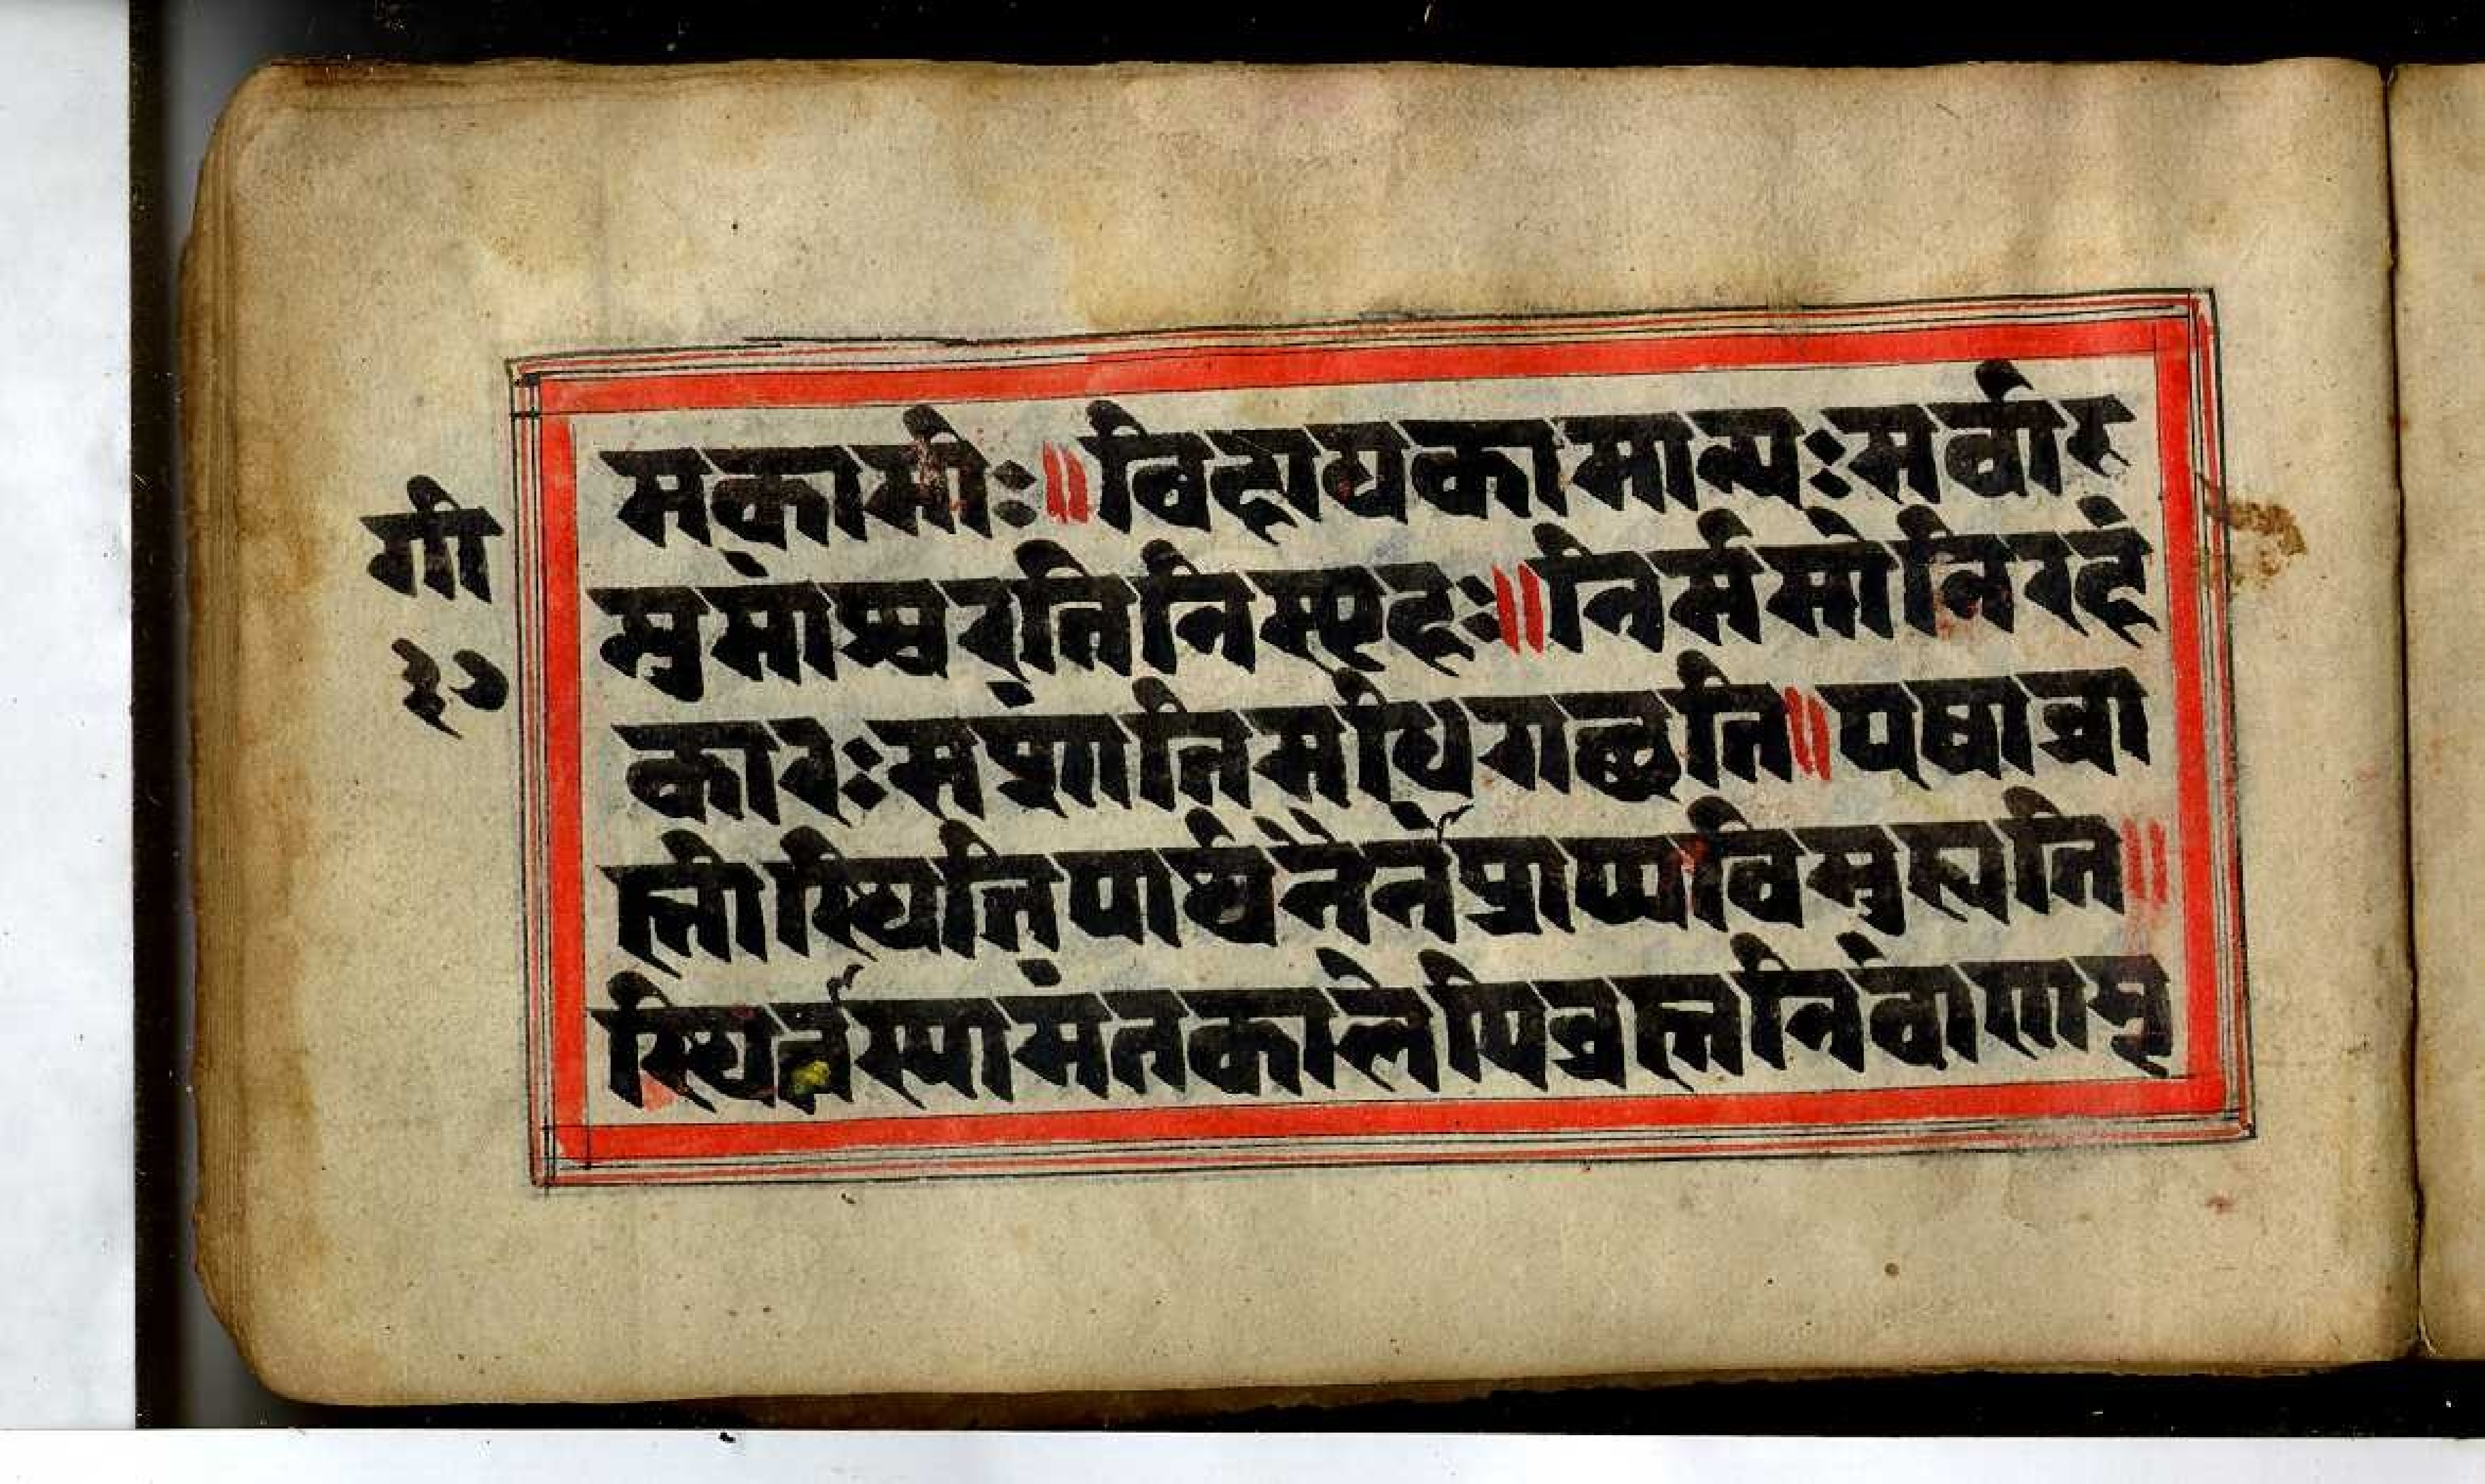 गी
३७
मकामीः॥विहायकामान्यःसर्वार
मुमांश्चरतिनिस्पृहः॥निर्ममोनिरहं
कारःसशांतिमधिगछति॥एषाब्रा
ह्मीस्थितिपार्थनैनंप्राप्यविमुह्यति॥
स्थित्वास्यामंतकालेपिब्रह्मनिर्वाणमृ